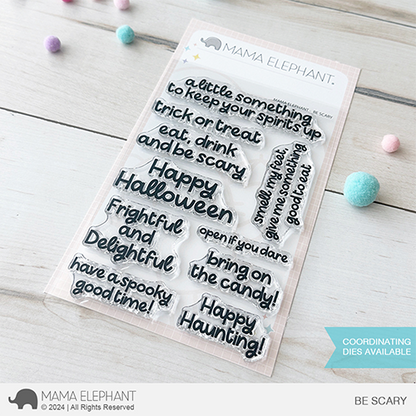 MAMA ELEPHANT.
MAMA ELEPHANT BE SCARY
a little something
to keep your spirits up
trick or treat
eat, drink
and be scary
smell my feet,
give me something
good to eat
Happy
Halloween
Frightful
and
Delightful
open if you dare
bring on
the candy!
have a spooky
good time!
Happy
Haunting!
COORDINATING
DIES AVAILABLE
MAMA ELEPHANT
© 2024 | All Rights Reserved
BE SCARY